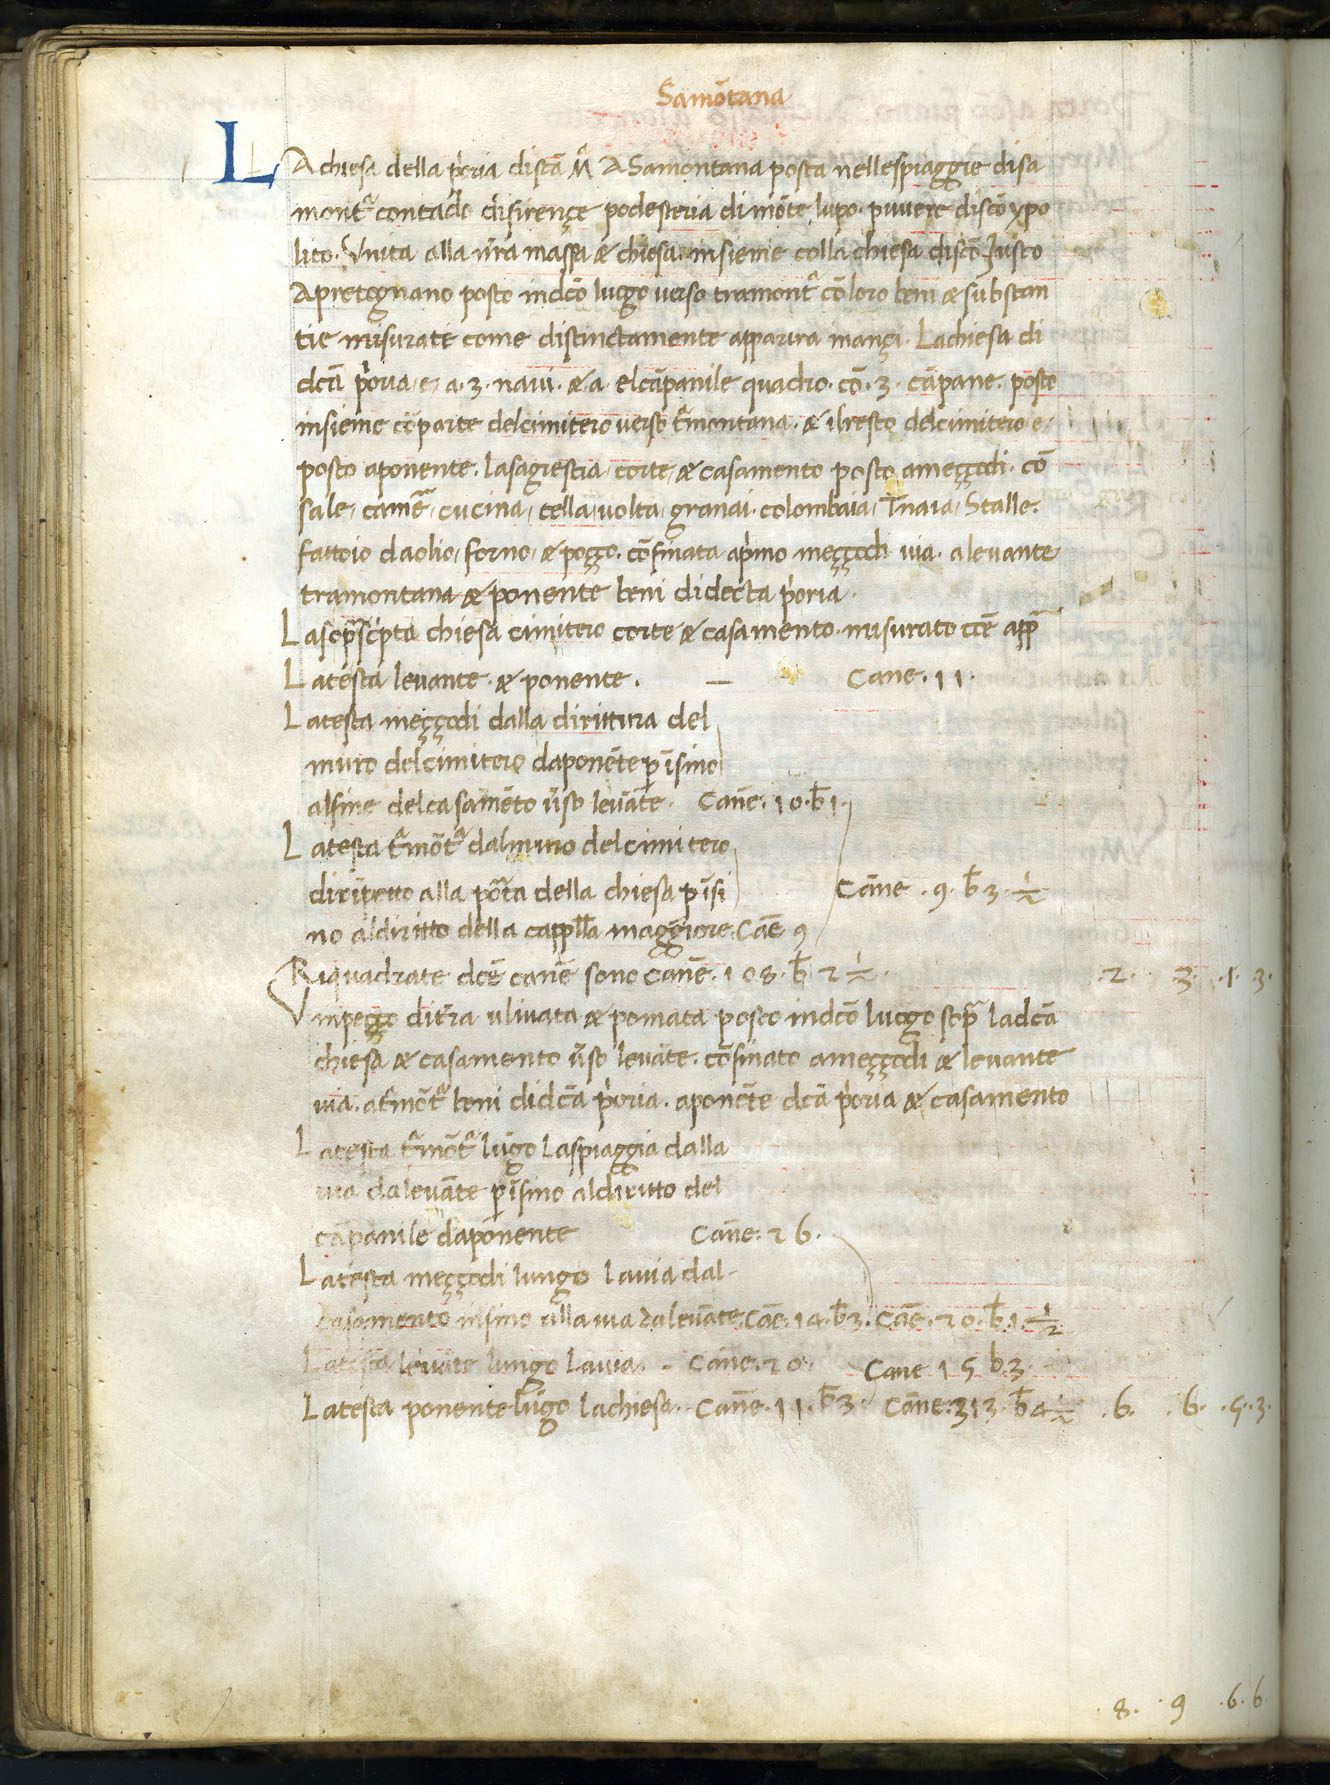 Samōtana
LA chiesa della p'oria di sctā M A Samontana posta nelle spiaggie di sa
mont' contado di firençe podesteria di mōte lupo. piuiere di scō ypo
lito. Vnita alla nr̄a massa & chiesa. insieme colla chiesa di scō Justo
A pretognano posto in dcō luogo verso tramont' cō loro beni & substan
tie misurate come distinctamente apparira inançi. La chiesa di
dcā p'oria e a. 3. naui. & a el cāpanile quadro. cō. 3. cāpane. posto
insieme cō parte del cimitero verso t'montana. & il resto del cimitero e
posto a ponente. la sagrestia, corte, & casamento posto a meççodi. cō
sale, cam̄e, cucina, cella, volta, granai. colombaia, Tinaia, Stalle.
fattoio da olio, forno, & poççо. cōfinata a p'mo meççodi via. a levante
tramontana & ponente beni di decta p'oria.
La sop̄scipta chiesa cimitero corte & casamento. misurato cōe app̄
La testa levante & ponente. — Cane. 11.
La testa meççodi dalla dirittura del
muro del cimitero da ponēte p īsino
al fine del casamēto ūso levāte. Canē. 10. b̄ 1.
La testa t'mōt' dal muro del cimitero
dirīpetto alla porta della chiesa p īsi Cāne. 9. b̄ 3. ½
no al diritto della cappll̄a maggiore. Cāe 9
Riquadrate dcē canē sono canē. 108. b̄ 2 ½. .2. .3. .1. 3.
Vn peçço di t'ra vliuata & pomata posto in dcō luogo sop̄ la dcā
chiesa & casamento ūso levāte. cōfinato a meççodi & levante
via. a t'mōt' beni di dcā p'oria. a ponēte dcā p'oria & casamento
La testa t'mōt' lūgo la spiaggia dalla
via da levāte p īsino al diritto del
cāpanile da ponente Cāne. 26.
La testa meççodi lungo la via dal
casamento insino alla via da levāte. Cāe. 14. b̄ 3. Cāe. 20. b̄ 1. ½
La testa levāte lungo la via. - Cāne. 20. Cane 15 b 3.
La testa ponente lūgo la chiesa. Canē. 11. b̄ 3. Cāne. 313. b̄ 4 ½ .6. .6. .5. 3.
.8. .9 .6. 6.